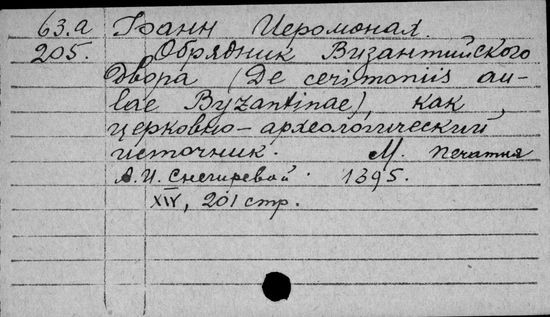 63.а Іоанн Иеромонах.
205. Обрядник Византийского
двора (De cerimoniis au-
lae Byzantinae), как
церковно-археологический
источник. М. печатня
А.И. Снегиревой. 1895.
XIV, 201 стр.